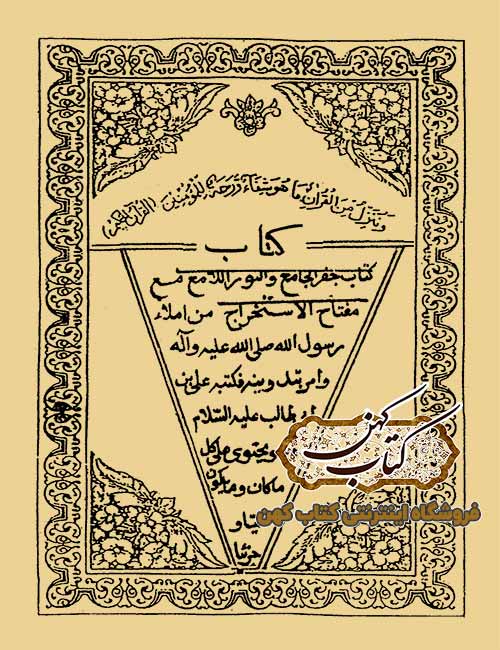 وننزل من القرآن ما هو شفاء ورحمة للمؤمنين القرآن
كتاب
كتاب جفر الجامع والنور اللامع مع
مفتاح الاستخراج من املاء
رسول الله صلى الله عليه وآله
فكتبه على بن
طالب عليه السلام
ويحتوى على كل
ماكان وما يكون
جزئيا
کتاب کهن
فروشگاه اینترنتی کتاب کهن